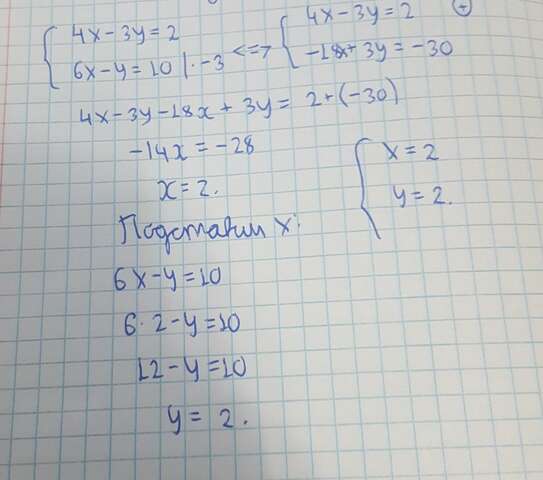 4x-3y=2
6x-y=10 |·-3 <=> 4x-3y=2
-18x+3y=-30
+
4x-3y-18x+3y=2+(-30)
-14x=-28
x=2.
Подставим x:
6x-y=10
6·2-y=10
12-y=10
y=2.
x=2
y=2.